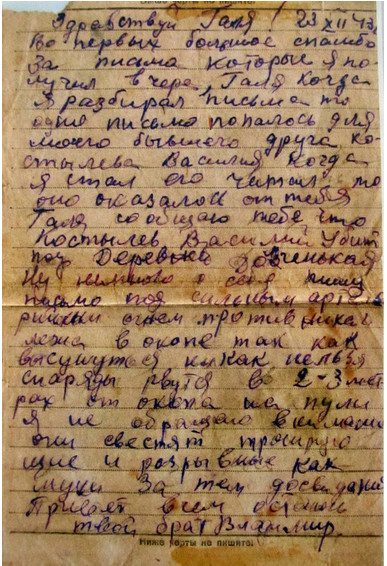 Здравствуй Галя! 23 XII 43
Во первых большое спасибо
за письма которые я по-
лучил вчера, Галя когда
я разбирал письма то
одно письмо попалось для
моего бывшего друга Ко-
стылева Василия когда
я стал его читал то
оно оказалось от тебя
Галя сообщаю тебе что
Костылев Василий убит
под деревней
Ну немного о себе пишу
письмо под сильным арти
рийским огнем противника
лежа в окопе так как
высунуться никак нельзя
снаряды рвутся в 2-3 мет
рах от окопа на пули
я не обращаю внимания
они свестят трасирую
щие и разрывные как
мухи За тем досвидания
Привет всем остаюсь
твой брат Владимир.
Ниже черты не пишите!